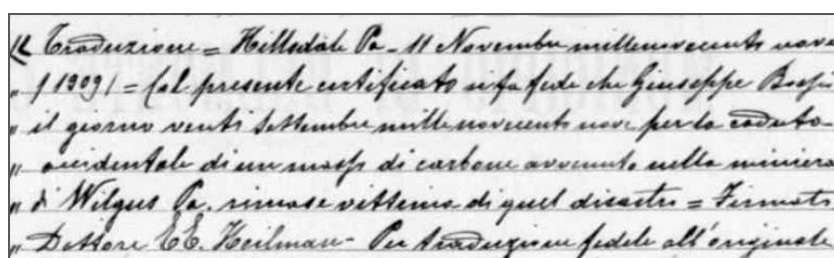 „ Traduzione = Hillsdale Pa - 11 Novembre millenovecento nove
„ (1909) = Col presente certificato si fa fede che Giuseppe
„ il giorno venti Settembre millenovecento nove per la caduta
„ accidentale di un masso di carbone avvenuta nella miniera
„ di Wilgus Pa. rimase vittima di quel disastro = Firmato
„ Dottore E.E. Heilman - Per traduzione fedele all'originale